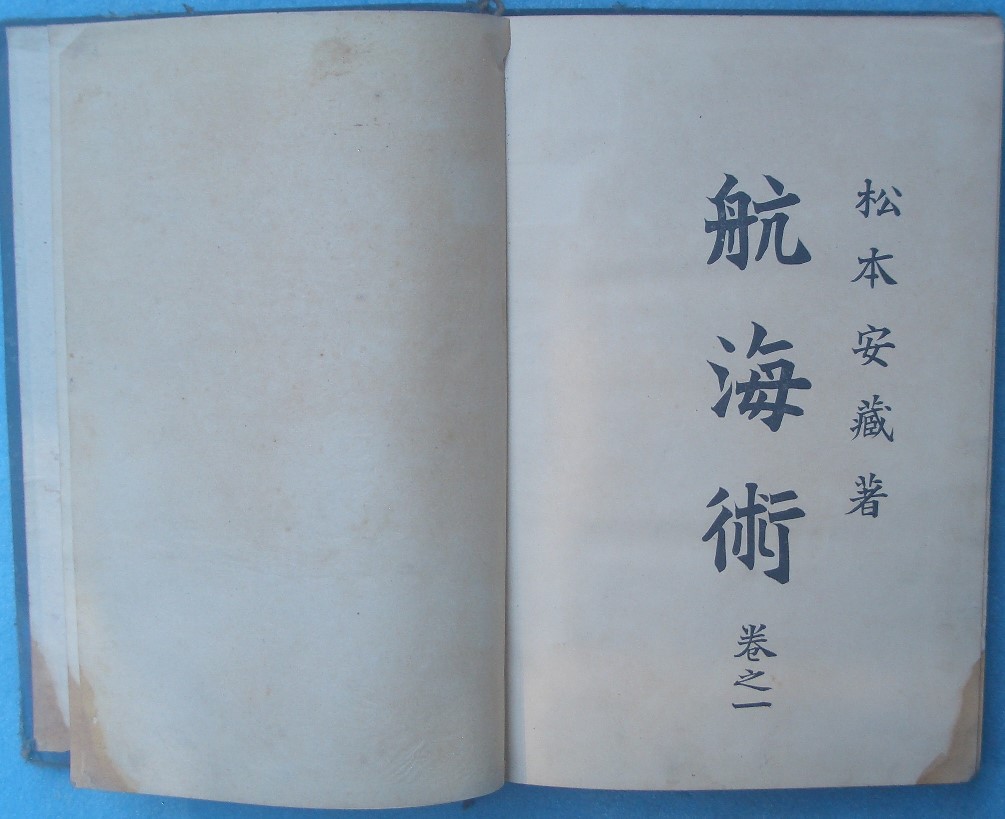 松本安藏著
航海術 卷之一